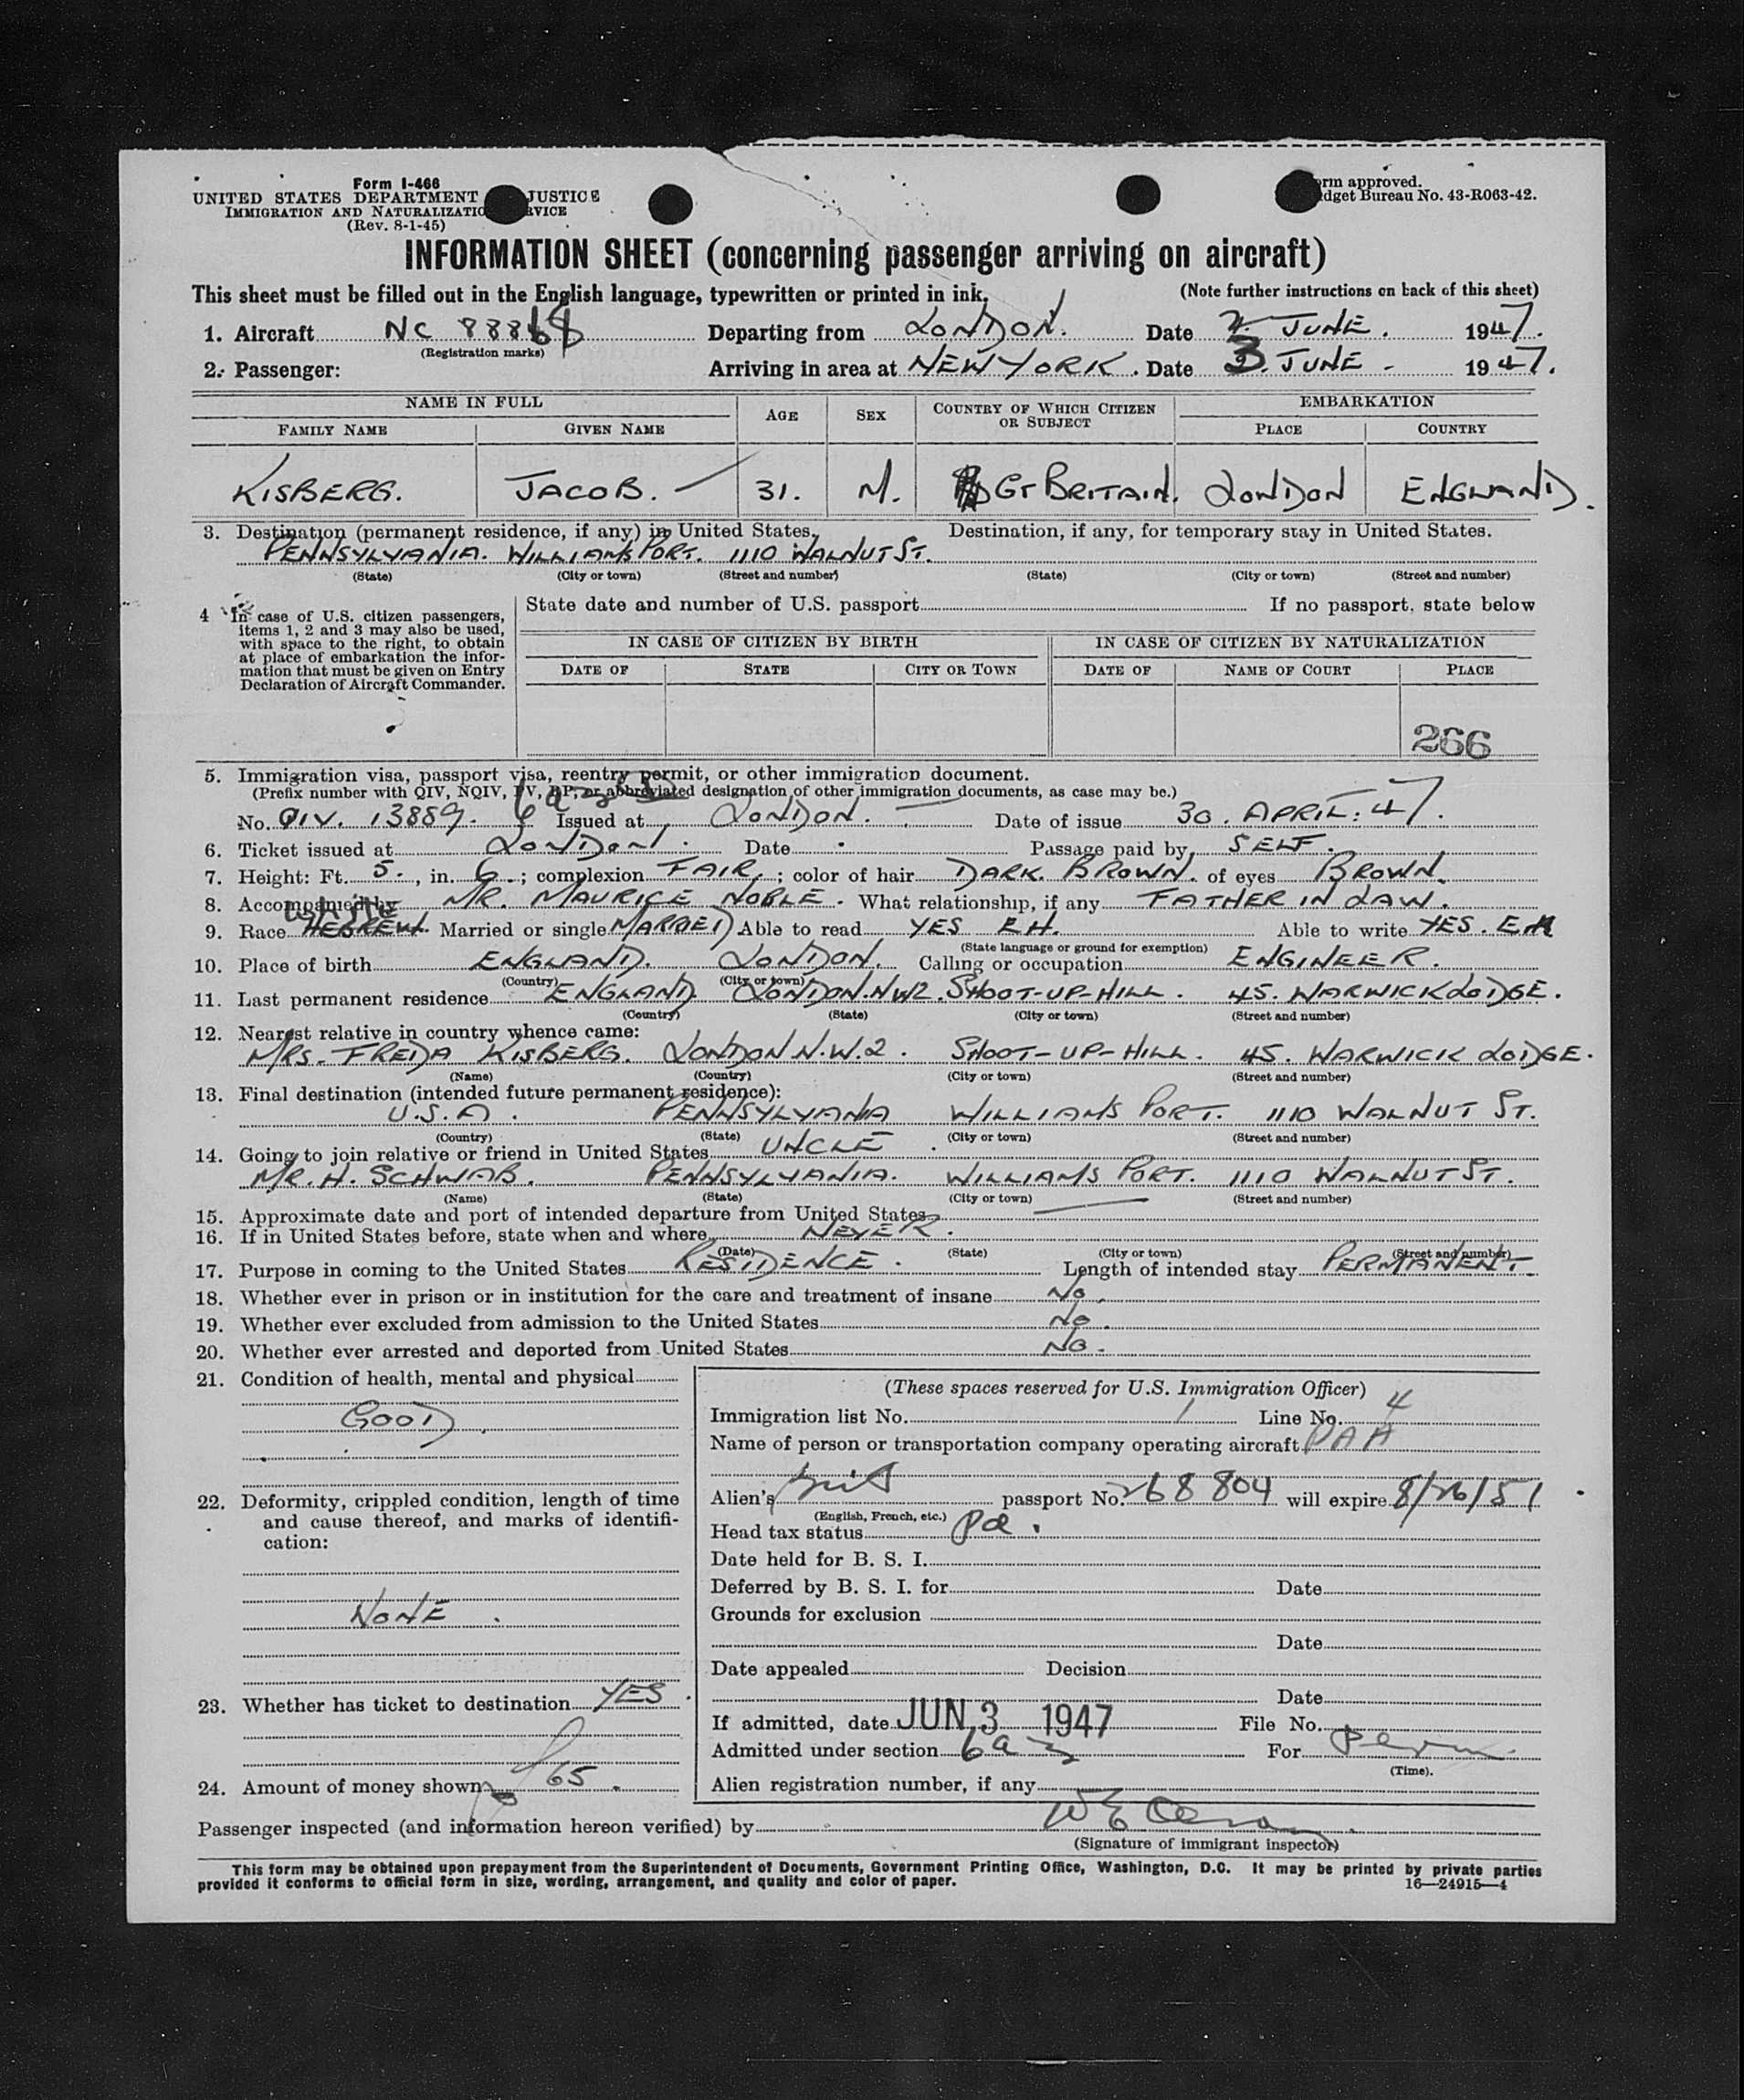 Form I-466
UNITED STATES DEPARTMENT JUSTICE
IMMIGRATION AND NATURALIZATIO RVICE
(Rev. 8-1-45)
orm approved.
dget Bureau No. 43-R063-42.
INFORMATION SHEET (concerning passenger arriving on aircraft)
This sheet must be filled out in the English language, typewritten or printed in ink. (Note further instructions on back of this sheet)
1. Aircraft NC 88868 Departing from LONDON. Date 2. JUNE. 1947.
(Registration marks)
2. Passenger: Arriving in area at NEW YORK. Date 3. JUNE - 1947.
NAME IN FULL AGE SEX COUNTRY OF WHICH CITIZEN OR SUBJECT EMBARKATION
FAMILY NAME GIVEN NAME PLACE COUNTRY
KISBERG. JACOB. 31. M. GT BRITAIN. LONDON ENGLAND.
3. Destination (permanent residence, if any) in United States. Destination, if any, for temporary stay in United States.
PENNSYLVANIA. WILLIAMS PORT. 1110 WALNUT ST.
(State) (City or town) (Street and number) (State) (City or town) (Street and number)
4 In case of U.S. citizen passengers, items 1, 2 and 3 may also be used, with space to the right, to obtain at place of embarkation the information that must be given on Entry Declaration of Aircraft Commander.
State date and number of U.S. passport If no passport, state below
IN CASE OF CITIZEN BY BIRTH IN CASE OF CITIZEN BY NATURALIZATION
DATE OF STATE CITY OR TOWN DATE OF NAME OF COURT PLACE
266
5. Immigration visa, passport visa, reentry permit, or other immigration document.
(Prefix number with QIV, NQIV, PV, RP, or abbreviated designation of other immigration documents, as case may be.)
No. QIV. 13889. Issued at LONDON. Date of issue 30. APRIL. 47.
6. Ticket issued at LONDON. Date Passage paid by SELF.
7. Height: Ft. 5., in. 6.; complexion FAIR.; color of hair DARK BROWN. of eyes BROWN.
8. Accompanied by MR. MAURICE NOBLE. What relationship, if any FATHER IN LAW.
white
9. Race HEBREW. Married or single MARRIED Able to read YES EH. Able to write YES. EH
(State language or ground for exemption)
10. Place of birth ENGLAND. LONDON. Calling or occupation ENGINEER.
(Country) (City or town)
11. Last permanent residence ENGLAND. LONDON.NW2. SHOOT-UP-HILL. 45. WARWICK LODGE.
(Country) (State) (City or town) (Street and number)
12. Nearest relative in country whence came:
MRS. FREDA KISBERG. LONDON N.W.2. SHOOT-UP-HILL. 45. WARWICK LODGE.
(Name) (Country) (City or town) (Street and number)
13. Final destination (intended future permanent residence):
U.S.A. PENNSYLVANIA WILLIAMS PORT. 1110 WALNUT ST.
(Country) (State) (City or town) (Street and number)
14. Going to join relative or friend in United States UNCLE
MR. H. SCHWAB. PENNSYLVANIA. WILLIAMS PORT. 1110 WALNUT ST.
(Name) (State) (City or town) (Street and number)
15. Approximate date and port of intended departure from United States
16. If in United States before, state when and where NEVER.
(Date) (State) (City or town) (Street and number)
17. Purpose in coming to the United States RESIDENCE. Length of intended stay PERMANENT.
18. Whether ever in prison or in institution for the care and treatment of insane No.
19. Whether ever excluded from admission to the United States No.
20. Whether ever arrested and deported from United States No.
21. Condition of health, mental and physical
GOOD.
22. Deformity, crippled condition, length of time and cause thereof, and marks of identification:
NONE.
23. Whether has ticket to destination YES.
24. Amount of money shown 65.
(These spaces reserved for U.S. Immigration Officer)
Immigration list No. 1 Line No. 4
Name of person or transportation company operating aircraft PAA
Alien's Brit passport No. 268804 will expire 8/26/51
(English, French, etc.)
Head tax status Pd.
Date held for B. S. I.
Deferred by B. S. I. for Date
Grounds for exclusion
Date
Date appealed Decision
Date
If admitted, date JUN 3 1947 File No.
Admitted under section 6a3 For Perm.
(Time).
Alien registration number, if any
Passenger inspected (and information hereon verified) by
(Signature of immigrant inspector)
This form may be obtained upon prepayment from the Superintendent of Documents, Government Printing Office, Washington, D.C. It may be printed by private parties
provided it conforms to official form in size, wording, arrangement, and quality and color of paper. 16—24915—4